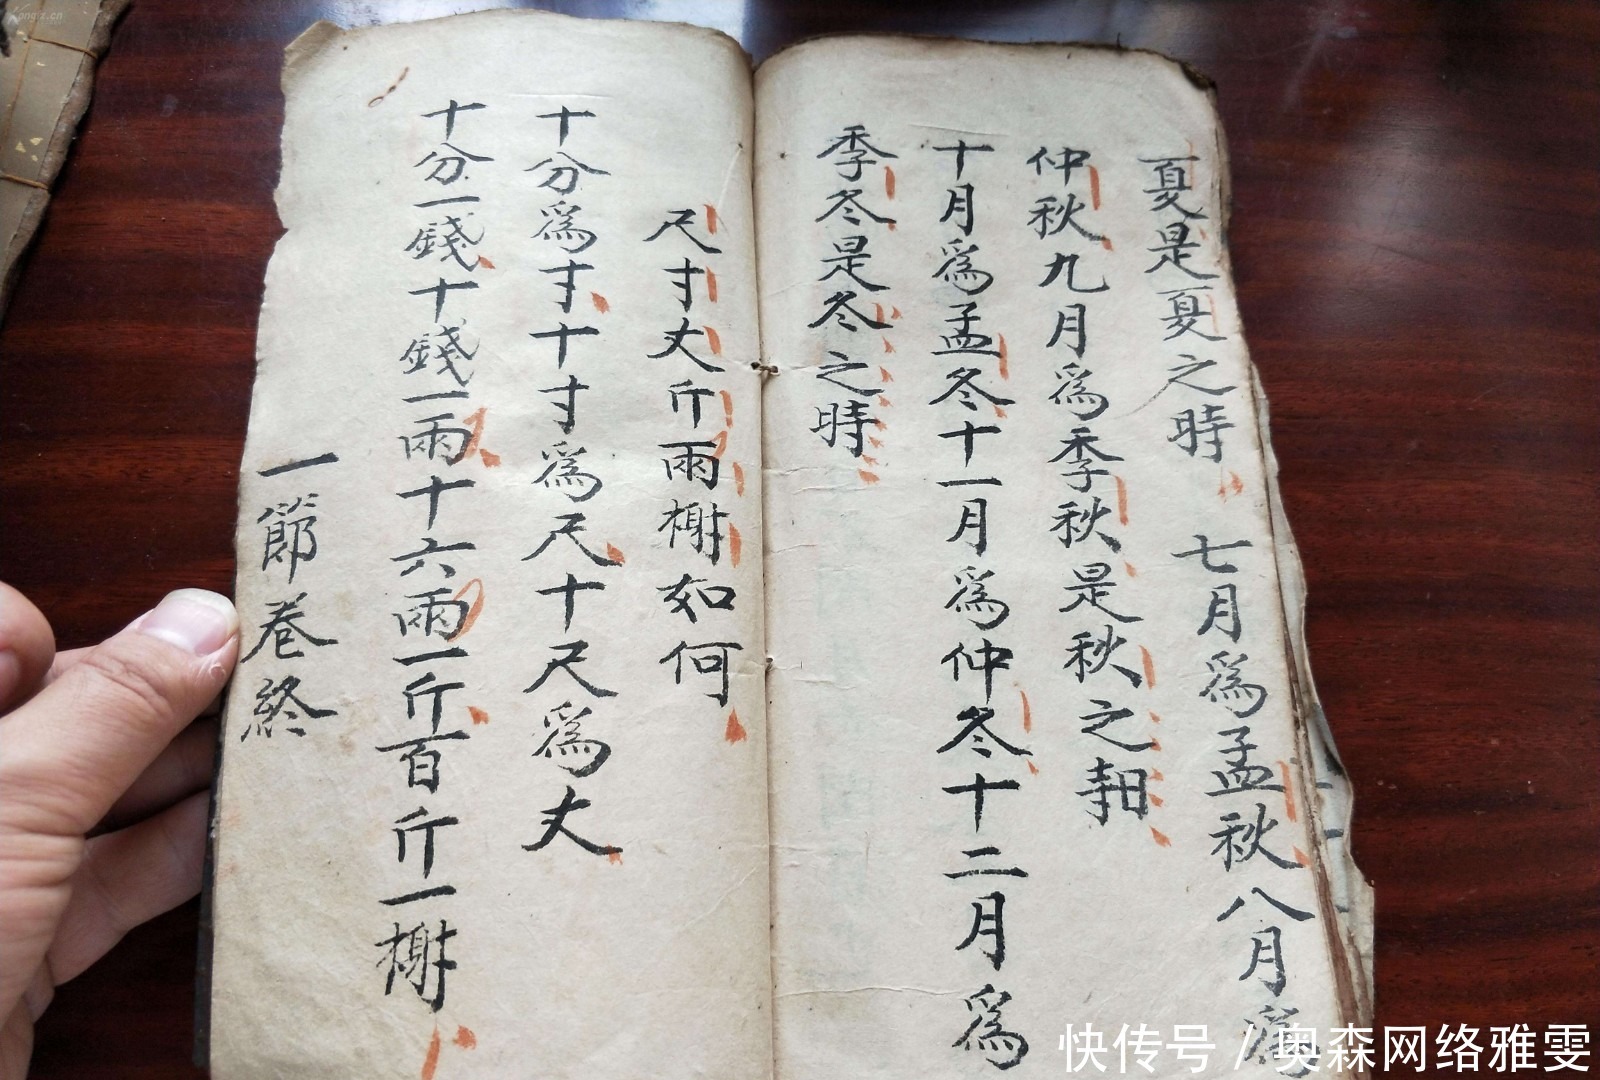 夏是夏之時 七月爲孟秋八月爲
仲秋九月爲季秋是秋之時
十月爲孟冬十一月爲仲冬十二月爲
季冬是冬之時
尺寸丈斤兩榭如何
十分爲寸十寸爲尺十尺爲丈
十分一錢十錢一兩十六兩一斤百斤一榭
一節卷終
快传号/奥森网络雅雯